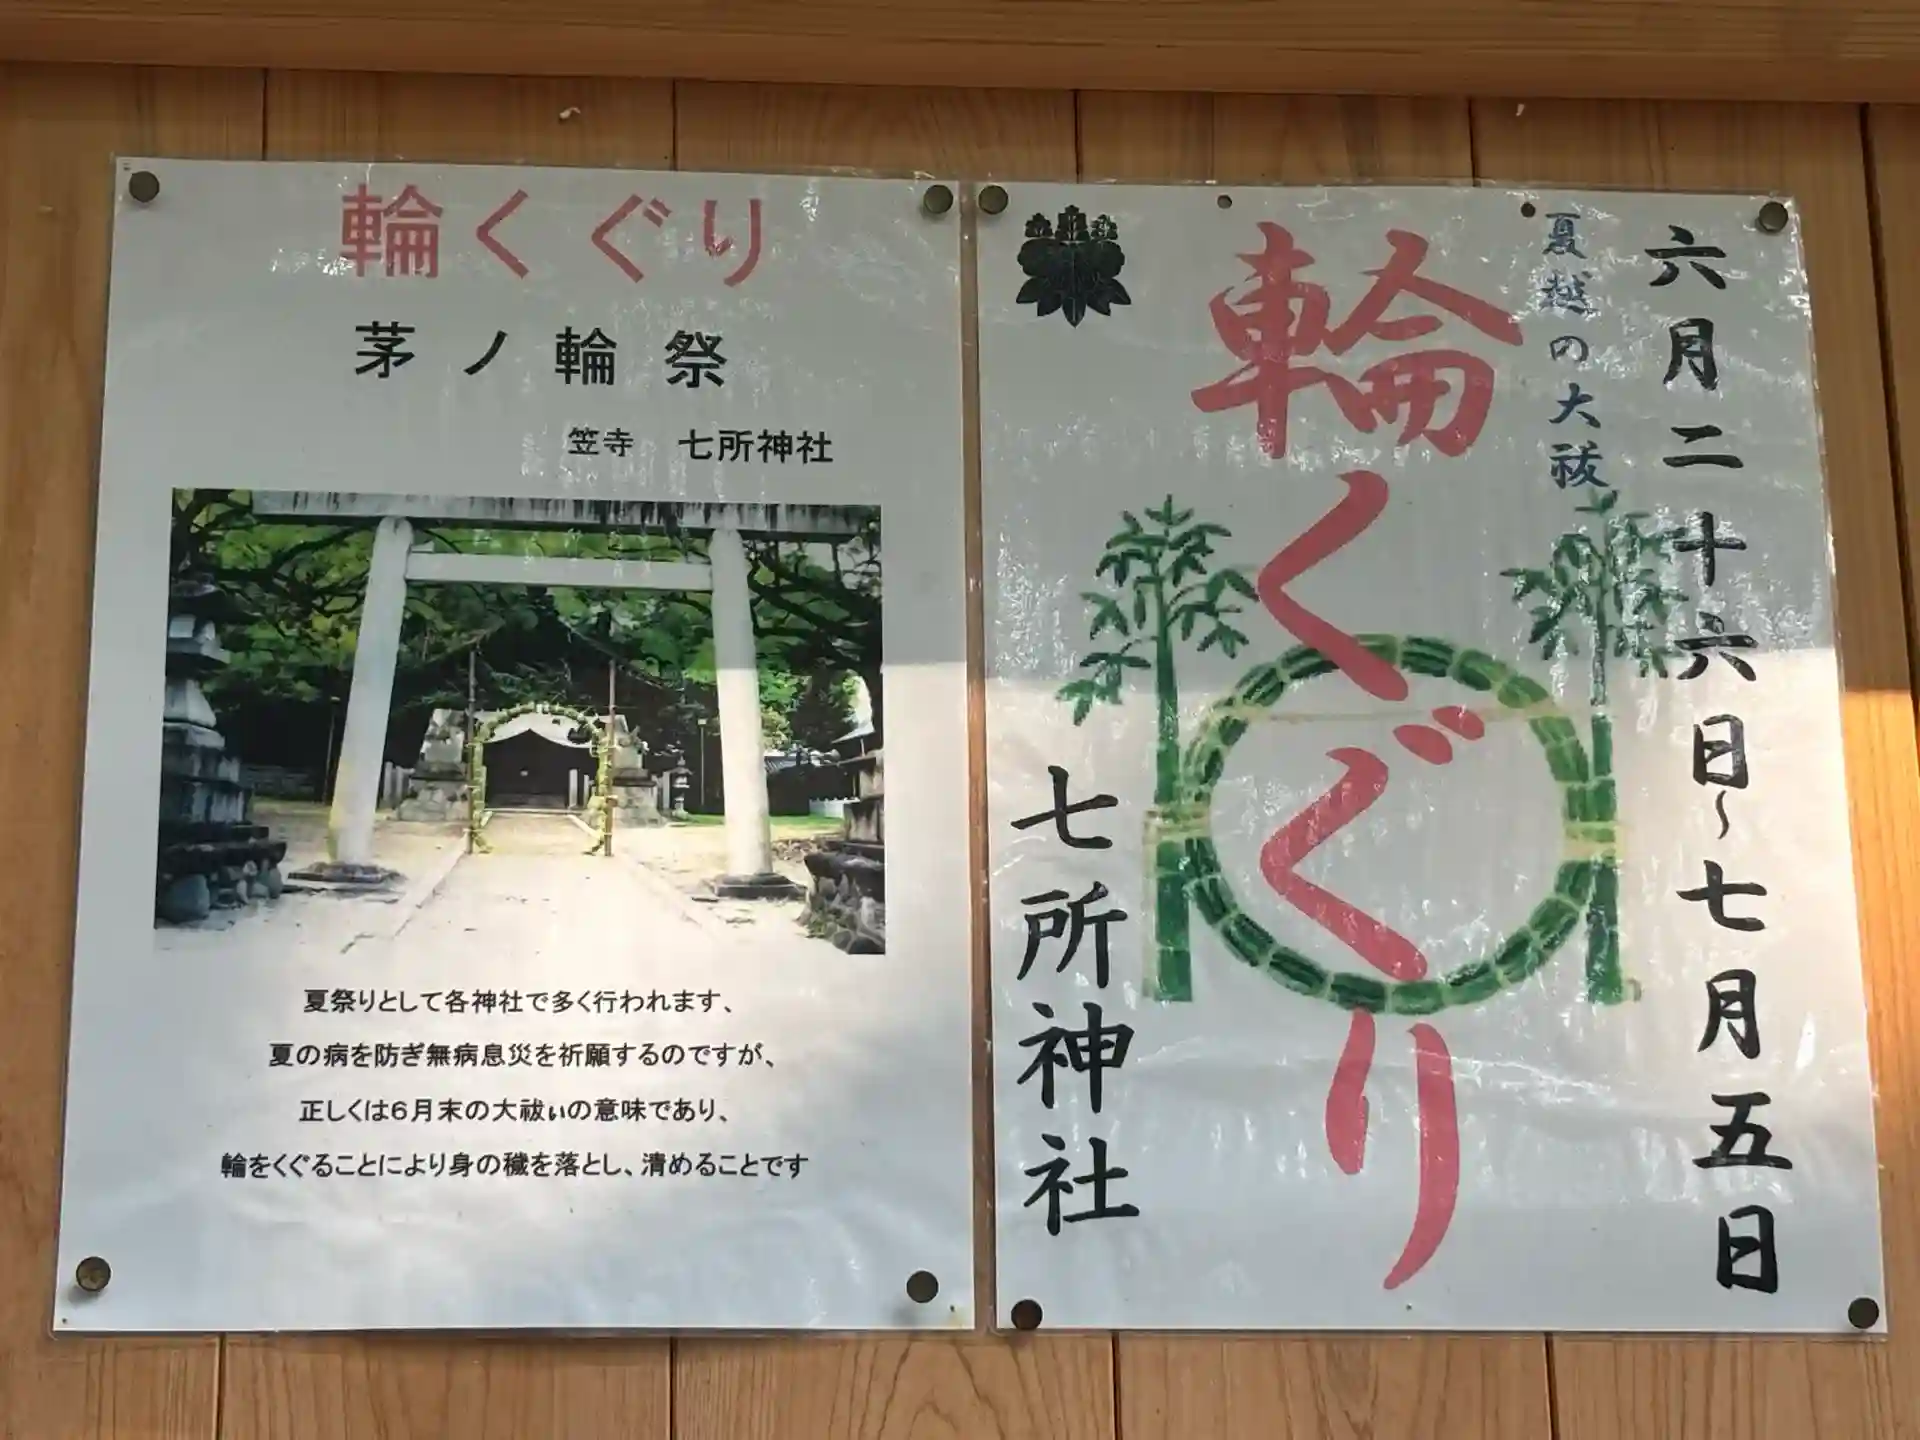 輪くぐり
茅ノ輪祭
笠寺　七所神社
夏祭りとして各神社で多く行われます、
夏の病を防ぎ無病息災を祈願するのですが、
正しくは６月末の大祓ぃの意味であり、
輪をくぐることにより身の穢を落とし、清めることです
六月二十六日～七月五日
夏越の大祓
輪くぐり
七所神社